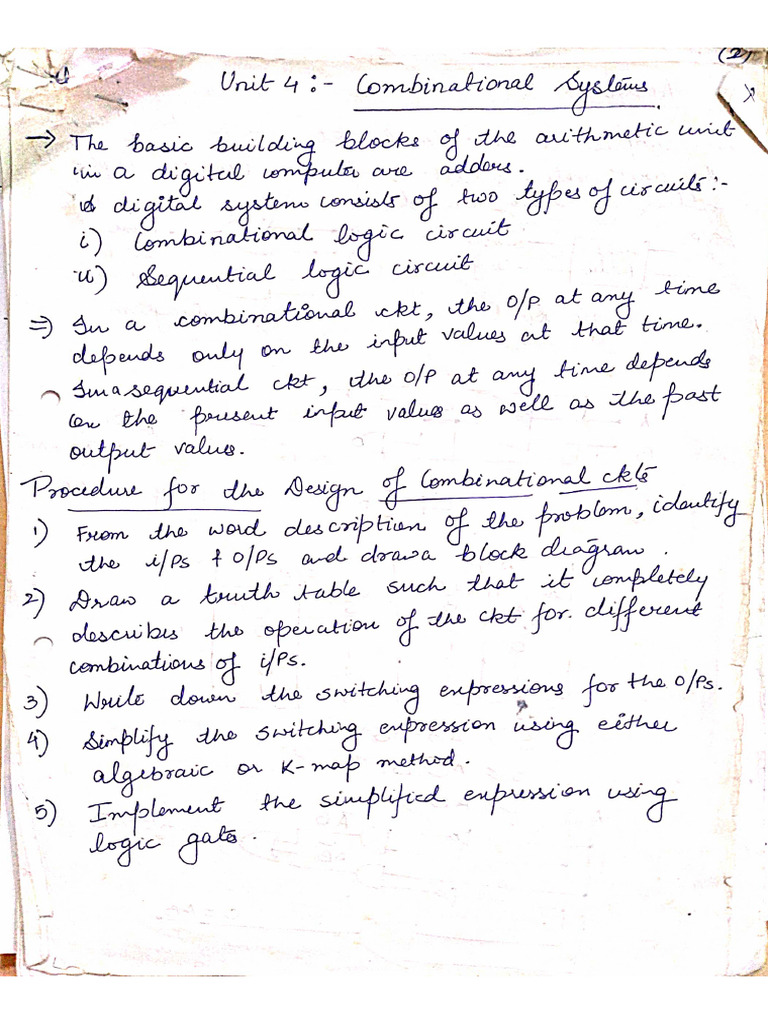 (2)
Unit 4 :- Combinational Systems
→ The basic building blocks of the arithmetic unit
in a digital computer are adders.
A digital system consists of two types of circuits :-
i) Combinational logic circuit
ii) Sequential logic circuit
⇒ In a combinational ckt, the O/P at any time
depends only on the input values at that time.
In a sequential ckt, the O/P at any time depends
on the present input values as well as the past
output values.
Procedure for the Design of Combinational ckts
1) From the word description of the problem, identify
the i/Ps & O/Ps and draw a block diagram.
2) Draw a truth table such that it completely
describes the operation of the ckt for different
combinations of i/Ps.
3) Write down the switching expressions for the O/Ps.
4) Simplify the switching expression using either
algebraic or K-map method.
5) Implement the simplified expression using
logic gates.